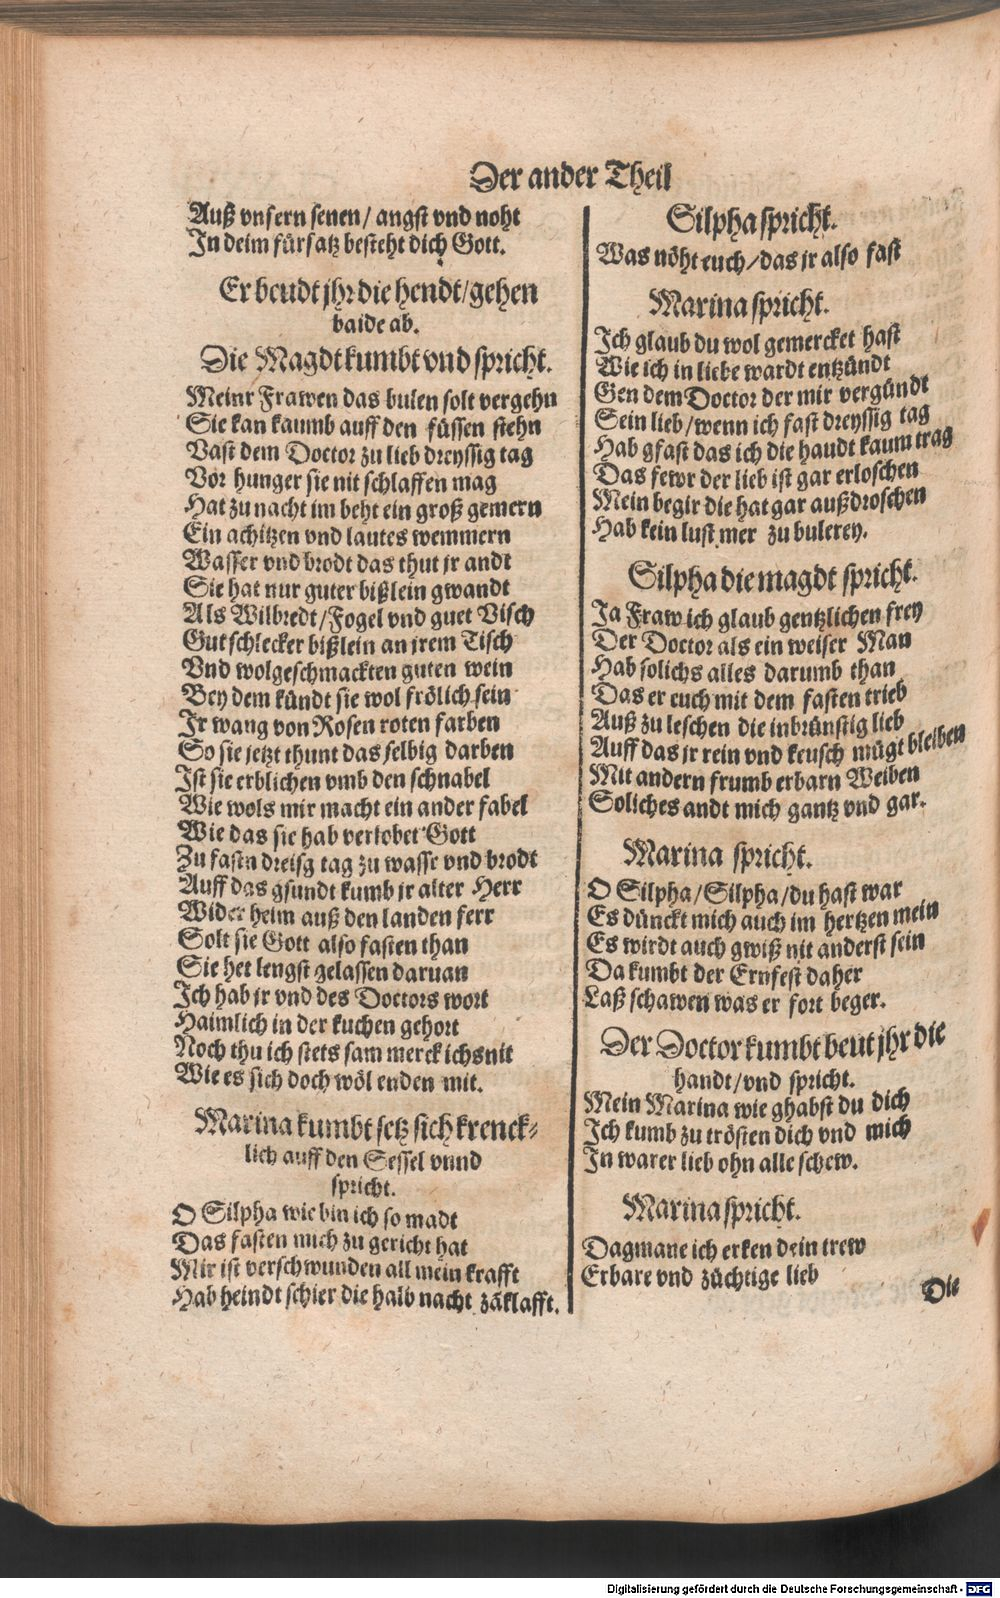 Der ander Theil
Auß vnsern senen/ angst vnd noht
In deim fürsatz besteht dich Gott.
Er beudt jhr die hendt/gehen
baide ab.
Die Magdt kumbt vnd spricht.
Meinr Frawen das bulen solt vergehn
Sie kan kaumb auff den füssen stehn
Vast dem Doctor zu lieb dreyssig tag
Vor hunger sie nit schlaffen mag
Hat zu nacht im beht ein groß gemern
Ein achitzen vnd lautes wemmern
Wasser vnd brodt das thut jr andt
Sie hat nur guter bißlein gwandt
Als Wilbredt/Fogel vnd guet Visch
Gut schlecker bißlein an jrem Tisch
Vnd wolgeschmackten guten wein
Bey dem kündt sie wol frölich sein
Ir wang von Rosen roten farben
So sie jetzt thunt das selbig darben
Ist sie erblichen vmb den schnabel
Wie wols mir macht ein ander fabel
Wie das sie hab verlobet Gott
Zu fastn dreisg tag zu wasse vnd brodt
Auff das gsundt kumb jr alter Herr
Wider heim auß den landen ferr
Solt sie Gott also fasten than
Sie het lengst gelassen daruan
Ich hab jr vnd des Doctors wort
Haimlich in der kuchen gehort
Noch thu ich stets sam merck ichs nit
Wie es sich doch wöl enden mit.
Marina kumbt setz sich krenck-
lich auff den Sessel vnnd
spricht.
O Silpha wie bin ich so madt
Das fasten mich zu gericht hat
Mir ist verschwunden all mein krafft
Hab heindt schier die halb nacht zäklafft.
Silpha spricht.
Was nöht euch/das jr also fast
Marina spricht.
Ich glaub du wol gemercket hast
Wie ich in liebe wardt entzündt
Gen dem Doctor der mir vergündt
Sein lieb/wenn ich fast dreyssig tag
Hab gfast das ich die haudt kaum trag
Das fewr der lieb ist gar erloschen
Mein begir die hat gar außdroschen
Hab kein lust mer zu bulerey.
Silpha die magdt spricht.
Ja Fraw ich glaub gentzlichen frey
Der Doctor als ein weiser Man
Hab solichs alles darumb than
Das er euch mit dem fasten trieb
Auß zu leschen die inbrünstig lieb
Auff das jr rein vnd keusch mügt bleiben
Mit andern frumb erbarn Weiben
Soliches andt mich gantz vnd gar.
Marina spricht.
O Silpha/Silpha/du hast war
Es dünckt mich auch im hertzen mein
Es wirdt auch gwiß nit anderst sein
Da kumbt der Ernfest daher
Laß schawen was er fort beger.
Der Doctor kumbt beut jhr die
handt/vnd spricht.
Mein Marina wie ghabst du dich
Ich kumb zu trösten dich vnd mich
In warer lieb ohn alle schew.
Marina spricht.
Dagmane ich erken dein trew
Erbare vnd züchtige lieb
Die
Digitalisierung gefördert durch die Deutsche Forschungsgemeinschaft - DFG